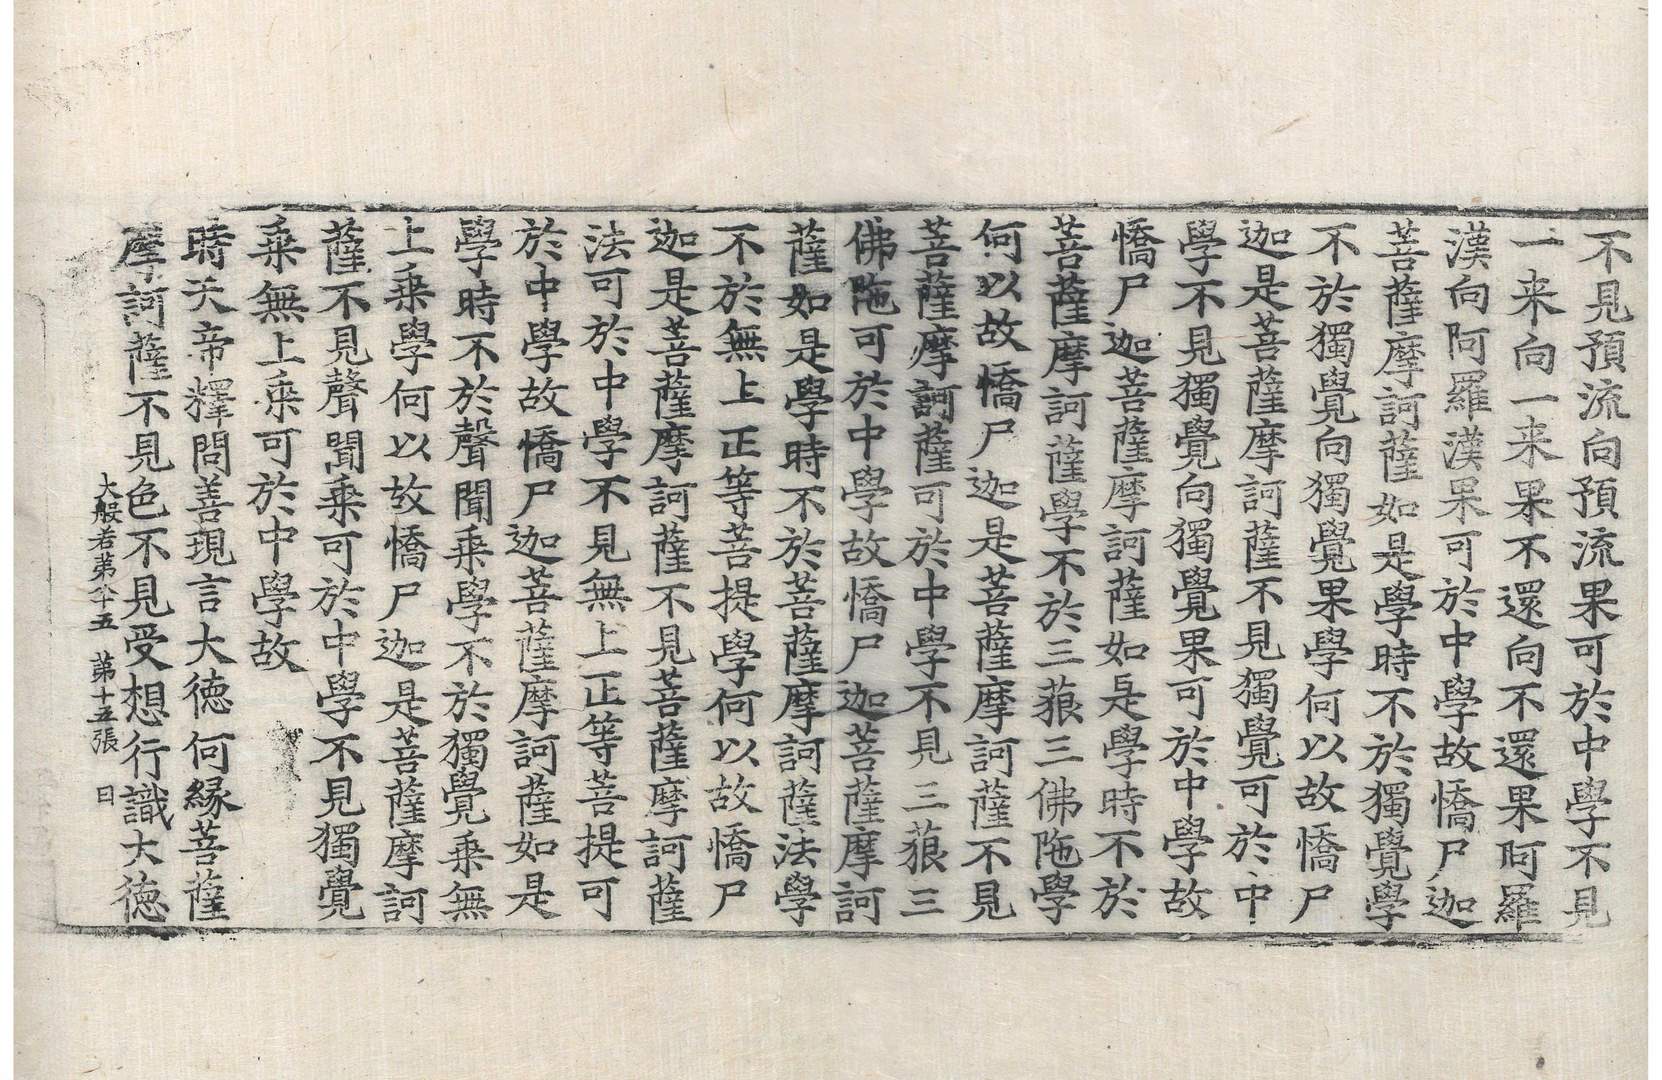 不見預流向預流果可於中學不見
一来向一来果不還向不還果阿羅
漢向阿羅漢果可於中學故憍尸迦
菩薩摩訶薩如是學時不於獨覺學
不於獨覺向獨覺果學何以故憍尸
迦是菩薩摩訶薩不見獨覺可於中
學不見獨覺向獨覺果可於中學故
憍尸迦菩薩摩訶薩如是學時不於
菩薩摩訶薩學不於三藐三佛陁學
何以故憍尸迦是菩薩摩訶薩不見
菩薩摩訶薩可於中學不見三藐三
佛陁可於中學故憍尸迦菩薩摩訶
薩如是學時不於菩薩摩訶薩法學
不於無上正等菩提學何以故憍尸
迦是菩薩摩訶薩不見菩薩摩訶薩
法可於中學不見無上正等菩提可
於中學故憍尸迦菩薩摩訶薩如是
學時不於聲聞乗學不於獨覺乗無
上乗學何以故憍尸迦是菩薩摩訶
薩不見聲聞乗可於中學不見獨覺
乗無上乗可於中學故
時天帝釋問善現言大徳何緣菩薩
摩訶薩不見色不見受想行識大徳
大般若第八十五 第十五張 日